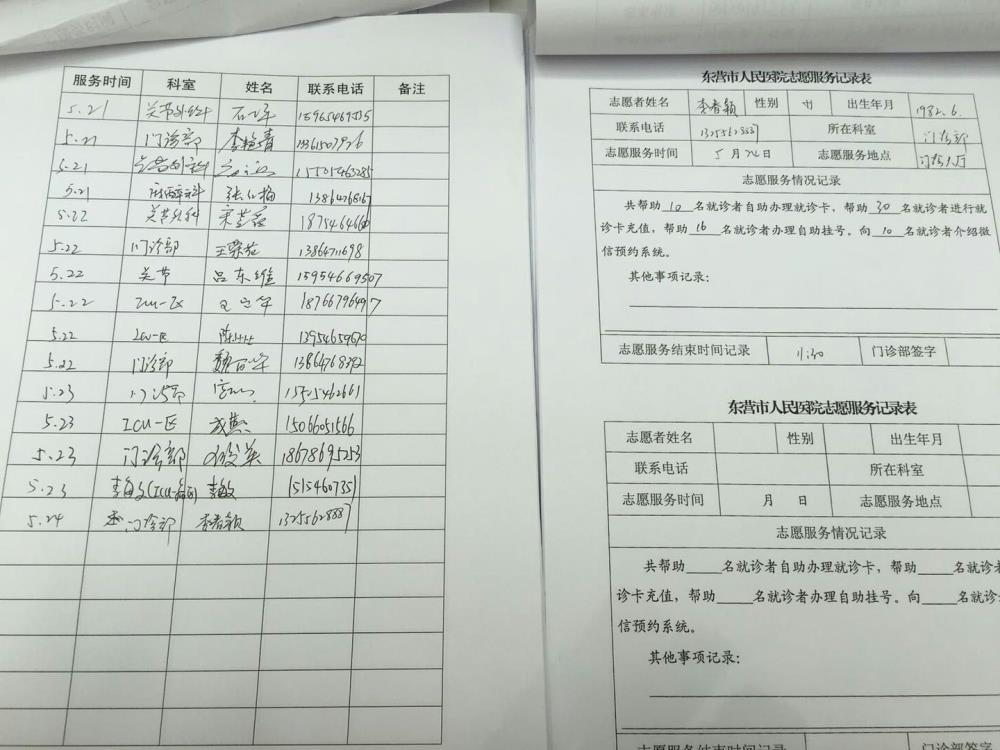 服务时间 科室 姓名 联系电话 备注
5.21 关节外科 15965469535
5.21 门诊部 李艳青
5.21 15505463285
5.21 麻醉科 张 13864768167
5.22 关节外科 宋 1875464660
5.22 门诊部 王荣花 13864711698
5.22 关节 吕东维 15954669507
5.22 ICU-区 18766796497
5.22 ICU-区 13954659670
5.22 门诊部 魏百军 13864768392
5.23 门诊部 15505462661
5.23 ICU-区 成燕 15066051566
5.23 门诊部 18678695253
5.23 李敏 1515460735
5.24 门诊部 李春颖 13255628887
东营市人民医院志愿服务记录表
志愿者姓名 李春颖 性别 女 出生年月 1982.6.
联系电话 13255628887 所在科室 门诊部
志愿服务时间 5月24日 志愿服务地点 门诊大厅
志愿服务情况记录
共帮助 10 名就诊者自助办理就诊卡，帮助 30 名就诊者进行就
诊卡充值，帮助 16 名就诊者办理自助挂号。向 10 名就诊者介绍微
信预约系统。
其他事项记录：
志愿服务结束时间记录 11:30 门诊部签字
东营市人民医院志愿服务记录表
志愿者姓名 性别 出生年月
联系电话 所在科室
志愿服务时间 月 日 志愿服务地点
志愿服务情况记录
共帮助____名就诊者自助办理就诊卡，帮助____名就诊者
诊卡充值，帮助____名就诊者办理自助挂号。向____名就诊
信预约系统。
其他事项记录：
志愿服务结束时间记录 门诊部签字